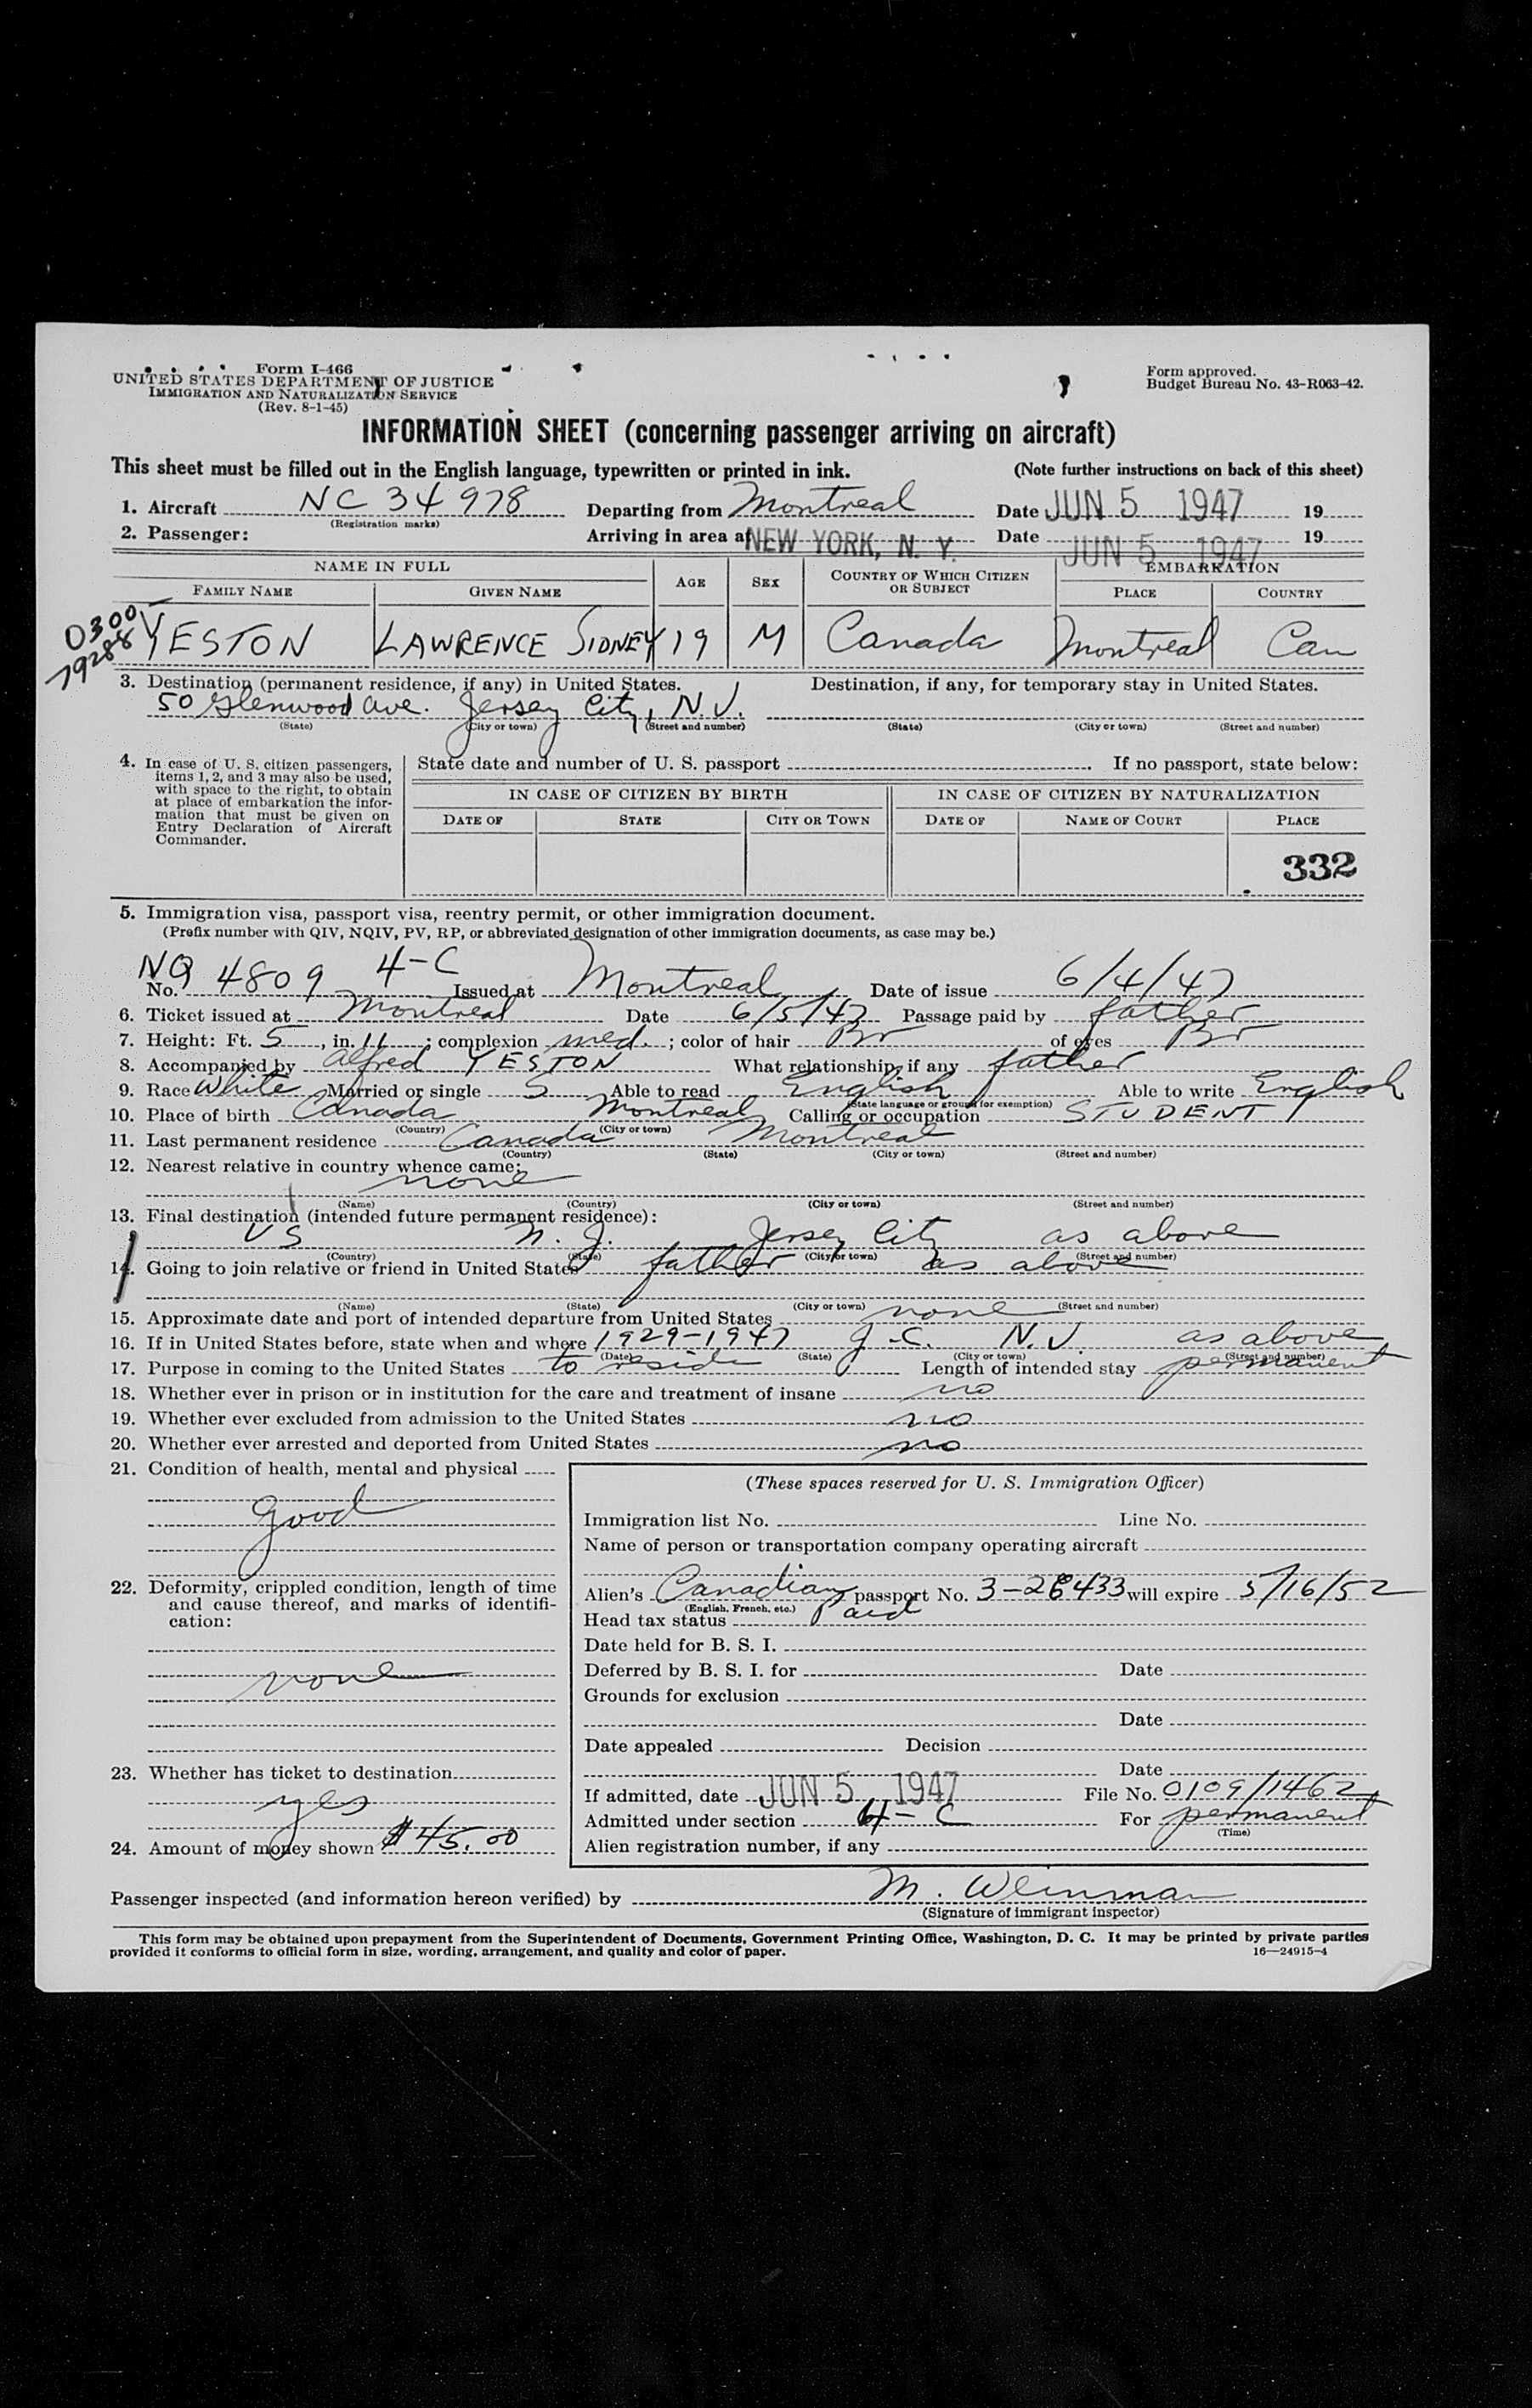 Form I-466
UNITED STATES DEPARTMENT OF JUSTICE
IMMIGRATION AND NATURALIZATION SERVICE
(Rev. 8-1-45)
Form approved.
Budget Bureau No. 43-R063-42.
INFORMATION SHEET (concerning passenger arriving on aircraft)
This sheet must be filled out in the English language, typewritten or printed in ink. (Note further instructions on back of this sheet)
1. Aircraft NC 34978 Departing from Montreal Date JUN 5 1947 19
(Registration marks)
2. Passenger: Arriving in area at NEW YORK, N. Y. Date JUN 5 1947 19
NAME IN FULL AGE SEX COUNTRY OF WHICH CITIZEN OR SUBJECT EMBARKATION
FAMILY NAME GIVEN NAME PLACE COUNTRY
0300
79288
YESTON LAWRENCE SIDNEY 19 M Canada Montreal Can
3. Destination (permanent residence, if any) in United States. Destination, if any, for temporary stay in United States.
50 Glenwood Ave. Jersey City, N.J.
(State) (City or town) (Street and number) (State) (City or town) (Street and number)
4. In case of U. S. citizen passengers, items 1, 2, and 3 may also be used, with space to the right, to obtain at place of embarkation the information that must be given on Entry Declaration of Aircraft Commander.
State date and number of U. S. passport . If no passport, state below:
IN CASE OF CITIZEN BY BIRTH IN CASE OF CITIZEN BY NATURALIZATION
DATE OF STATE CITY OR TOWN DATE OF NAME OF COURT PLACE
332
5. Immigration visa, passport visa, reentry permit, or other immigration document.
(Prefix number with QIV, NQIV, PV, RP, or abbreviated designation of other immigration documents, as case may be.)
No. NQ 4809 4-C Issued at Montreal Date of issue 6/4/47
6. Ticket issued at Montreal Date 6/5/47 Passage paid by father
7. Height: Ft. 5, in. 11; complexion med.; color of hair Br of eyes Br
8. Accompanied by Alfred YESTON What relationship, if any father
9. Race White Married or single S Able to read English Able to write English
(State language or ground for exemption)
10. Place of birth Canada Montreal Calling or occupation STUDENT
(Country) (City or town)
11. Last permanent residence Canada Montreal
(Country) (State) (City or town) (Street and number)
12. Nearest relative in country whence came:
none
(Name) (Country) (City or town) (Street and number)
13. Final destination (intended future permanent residence):
US N. J. Jersey City as above
(Country) (State) (City or town) (Street and number)
14. Going to join relative or friend in United States father as above
(Name) (State) (City or town) (Street and number)
15. Approximate date and port of intended departure from United States none
16. If in United States before, state when and where 1929-1947 J.C. N.J. as above
(Date) (State) (City or town) (Street and number)
17. Purpose in coming to the United States to reside Length of intended stay permanent
18. Whether ever in prison or in institution for the care and treatment of insane no
19. Whether ever excluded from admission to the United States no
20. Whether ever arrested and deported from United States no
21. Condition of health, mental and physical
good
22. Deformity, crippled condition, length of time and cause thereof, and marks of identification:
none
23. Whether has ticket to destination
yes
24. Amount of money shown $45.00
(These spaces reserved for U. S. Immigration Officer)
Immigration list No. Line No.
Name of person or transportation company operating aircraft
Alien's Canadian passport No. 3-26433 will expire 5/16/52
(English, French, etc.)
Head tax status Paid
Date held for B. S. I.
Deferred by B. S. I. for Date
Grounds for exclusion
Date
Date appealed Decision
Date
If admitted, date JUN 5 1947 File No. 0109/1462
Admitted under section 4-C For permanent
(Time)
Alien registration number, if any
Passenger inspected (and information hereon verified) by M. Weinman
(Signature of immigrant inspector)
This form may be obtained upon prepayment from the Superintendent of Documents, Government Printing Office, Washington, D. C. It may be printed by private parties
provided it conforms to official form in size, wording, arrangement, and quality and color of paper. 16—24915-4